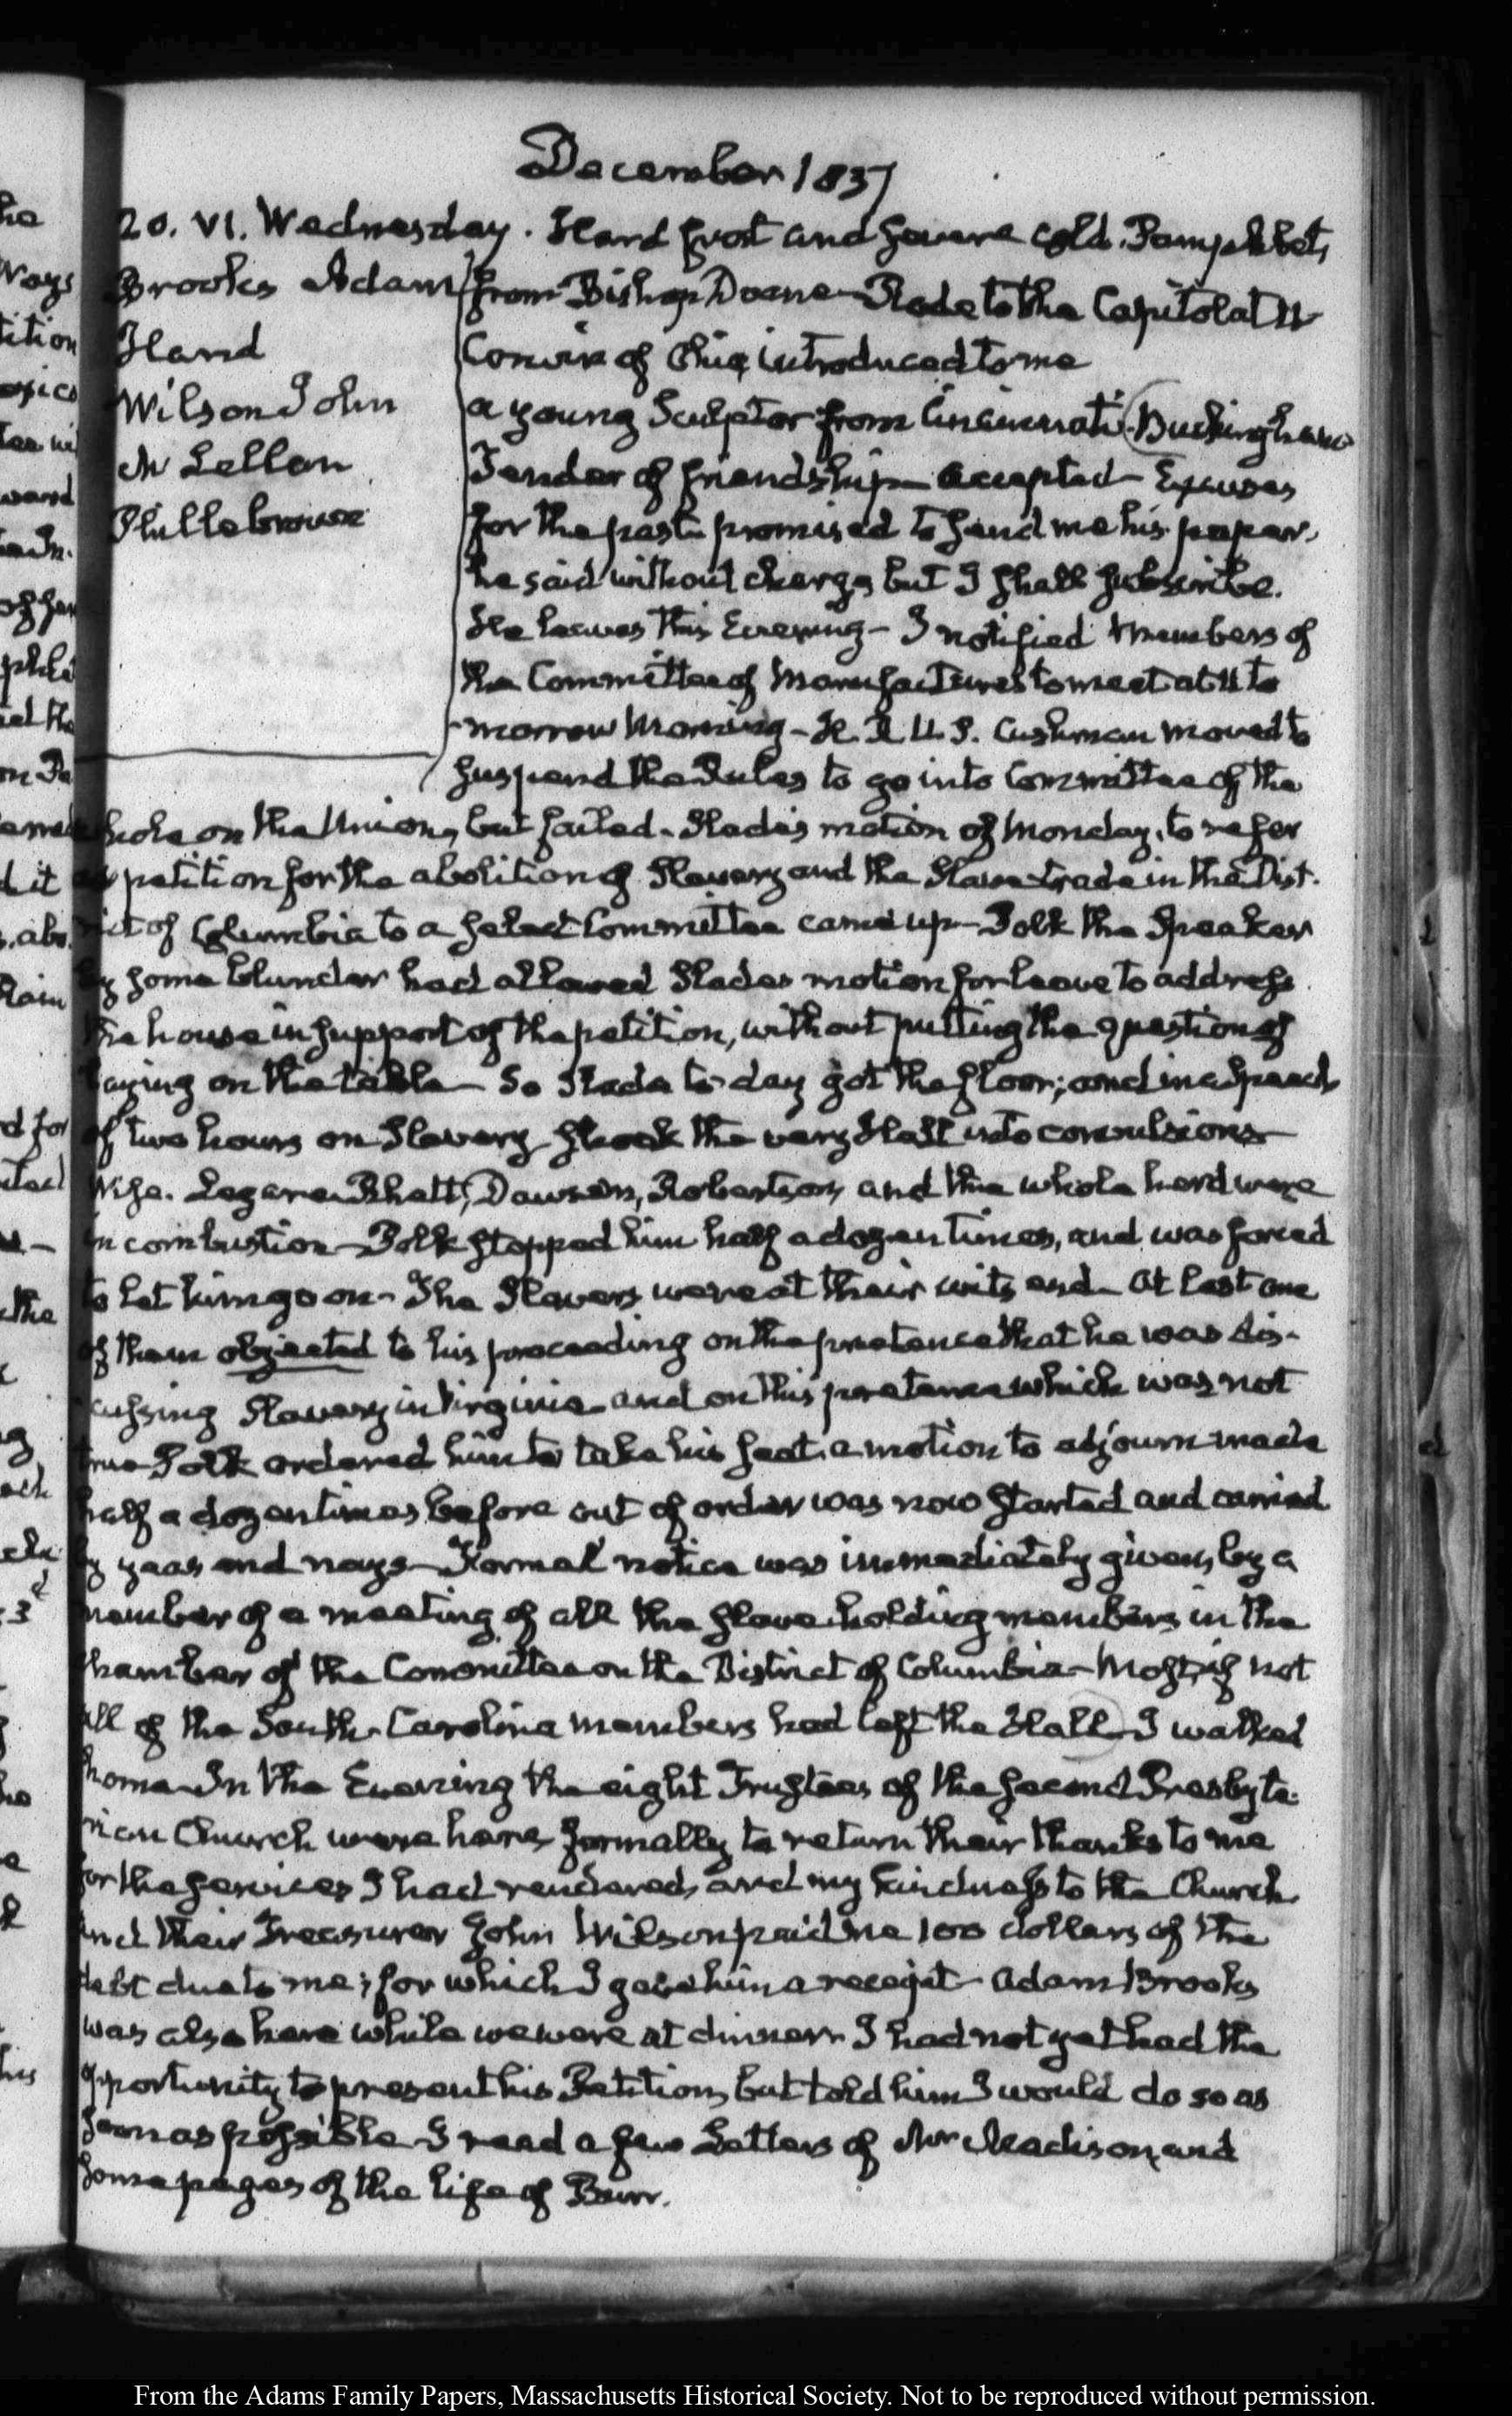 December 1837
20. VI. Wednesday. Hard frost and severe cold. Pamphlet,
Brooks Adam
Hand
Wilson John
McLellan
Hillebrouse
from Bishop Doane — Rode to the Capitol at 11
Corwin of Ohio introduced to me
a young Sculptor from Cincinnati. Buckingham
Tender of friendship — accepted — Excuses
for the past — promised to send me his paper,
he said without charge, but I shall subscribe.
He leaves this Evening — I notified Members of
the Committee of Manufactures to meet at 11 to
morrow Morning — H. R. U. S. Cushman moved to
suspend the Rules to go into Committee of the
whole on the Union, but failed. Slade's motion of Monday, to refer
petition for the abolition of Slavery and the Slave trade in the Dist-
rict of Columbia to a select Committee came up — Polk the Speaker
by some blunder had allowed Slades motion for leave to address
the house in support of the petition, without putting the question of
laying on the table — So Slade to-day got the floor; and in a Speech
of two hours on Slavery, shook the very Hall into convulsions
Wise. Legare Rhett, Dawson, Robertson, and the whole herd were
in combustion — Polk stopped him half a dozen times, and was forced
to let him go on — The Slavers were at their wits end — At last one
of them objected to his proceeding on the pretence that he was dis-
cussing Slavery in Virginia — and on this pretence which was not
true Polk ordered him to take his seat. a motion to adjourn made
half a dozen times before out of order was now started and carried
by yeas and nays — Formal notice was immediately given, by a
member of a meeting of all the slave-holding members in the
chamber of the Committee on the District of Columbia — Most, if not
all of the South-Carolina members had left the Hall — I walked
home — In the Evening the eight Trustees of the second Presbyte-
rian Church were here, formally to return their thanks to me
for the services I had rendered, and my kindness to the Church
And their Treasurer John Wilson paid me 100 dollars of the
debt due to me; for which I gave him a receipt — Adam Brooks
was also here while we were at dinner. I had not yet had the
opportunity to present his Petition, but told him I would do so as
soon as possible — I read a few Letters of Mr Madison, and
some pages of the life of Burr.
From the Adams Family Papers, Massachusetts Historical Society. Not to be reproduced without permission.